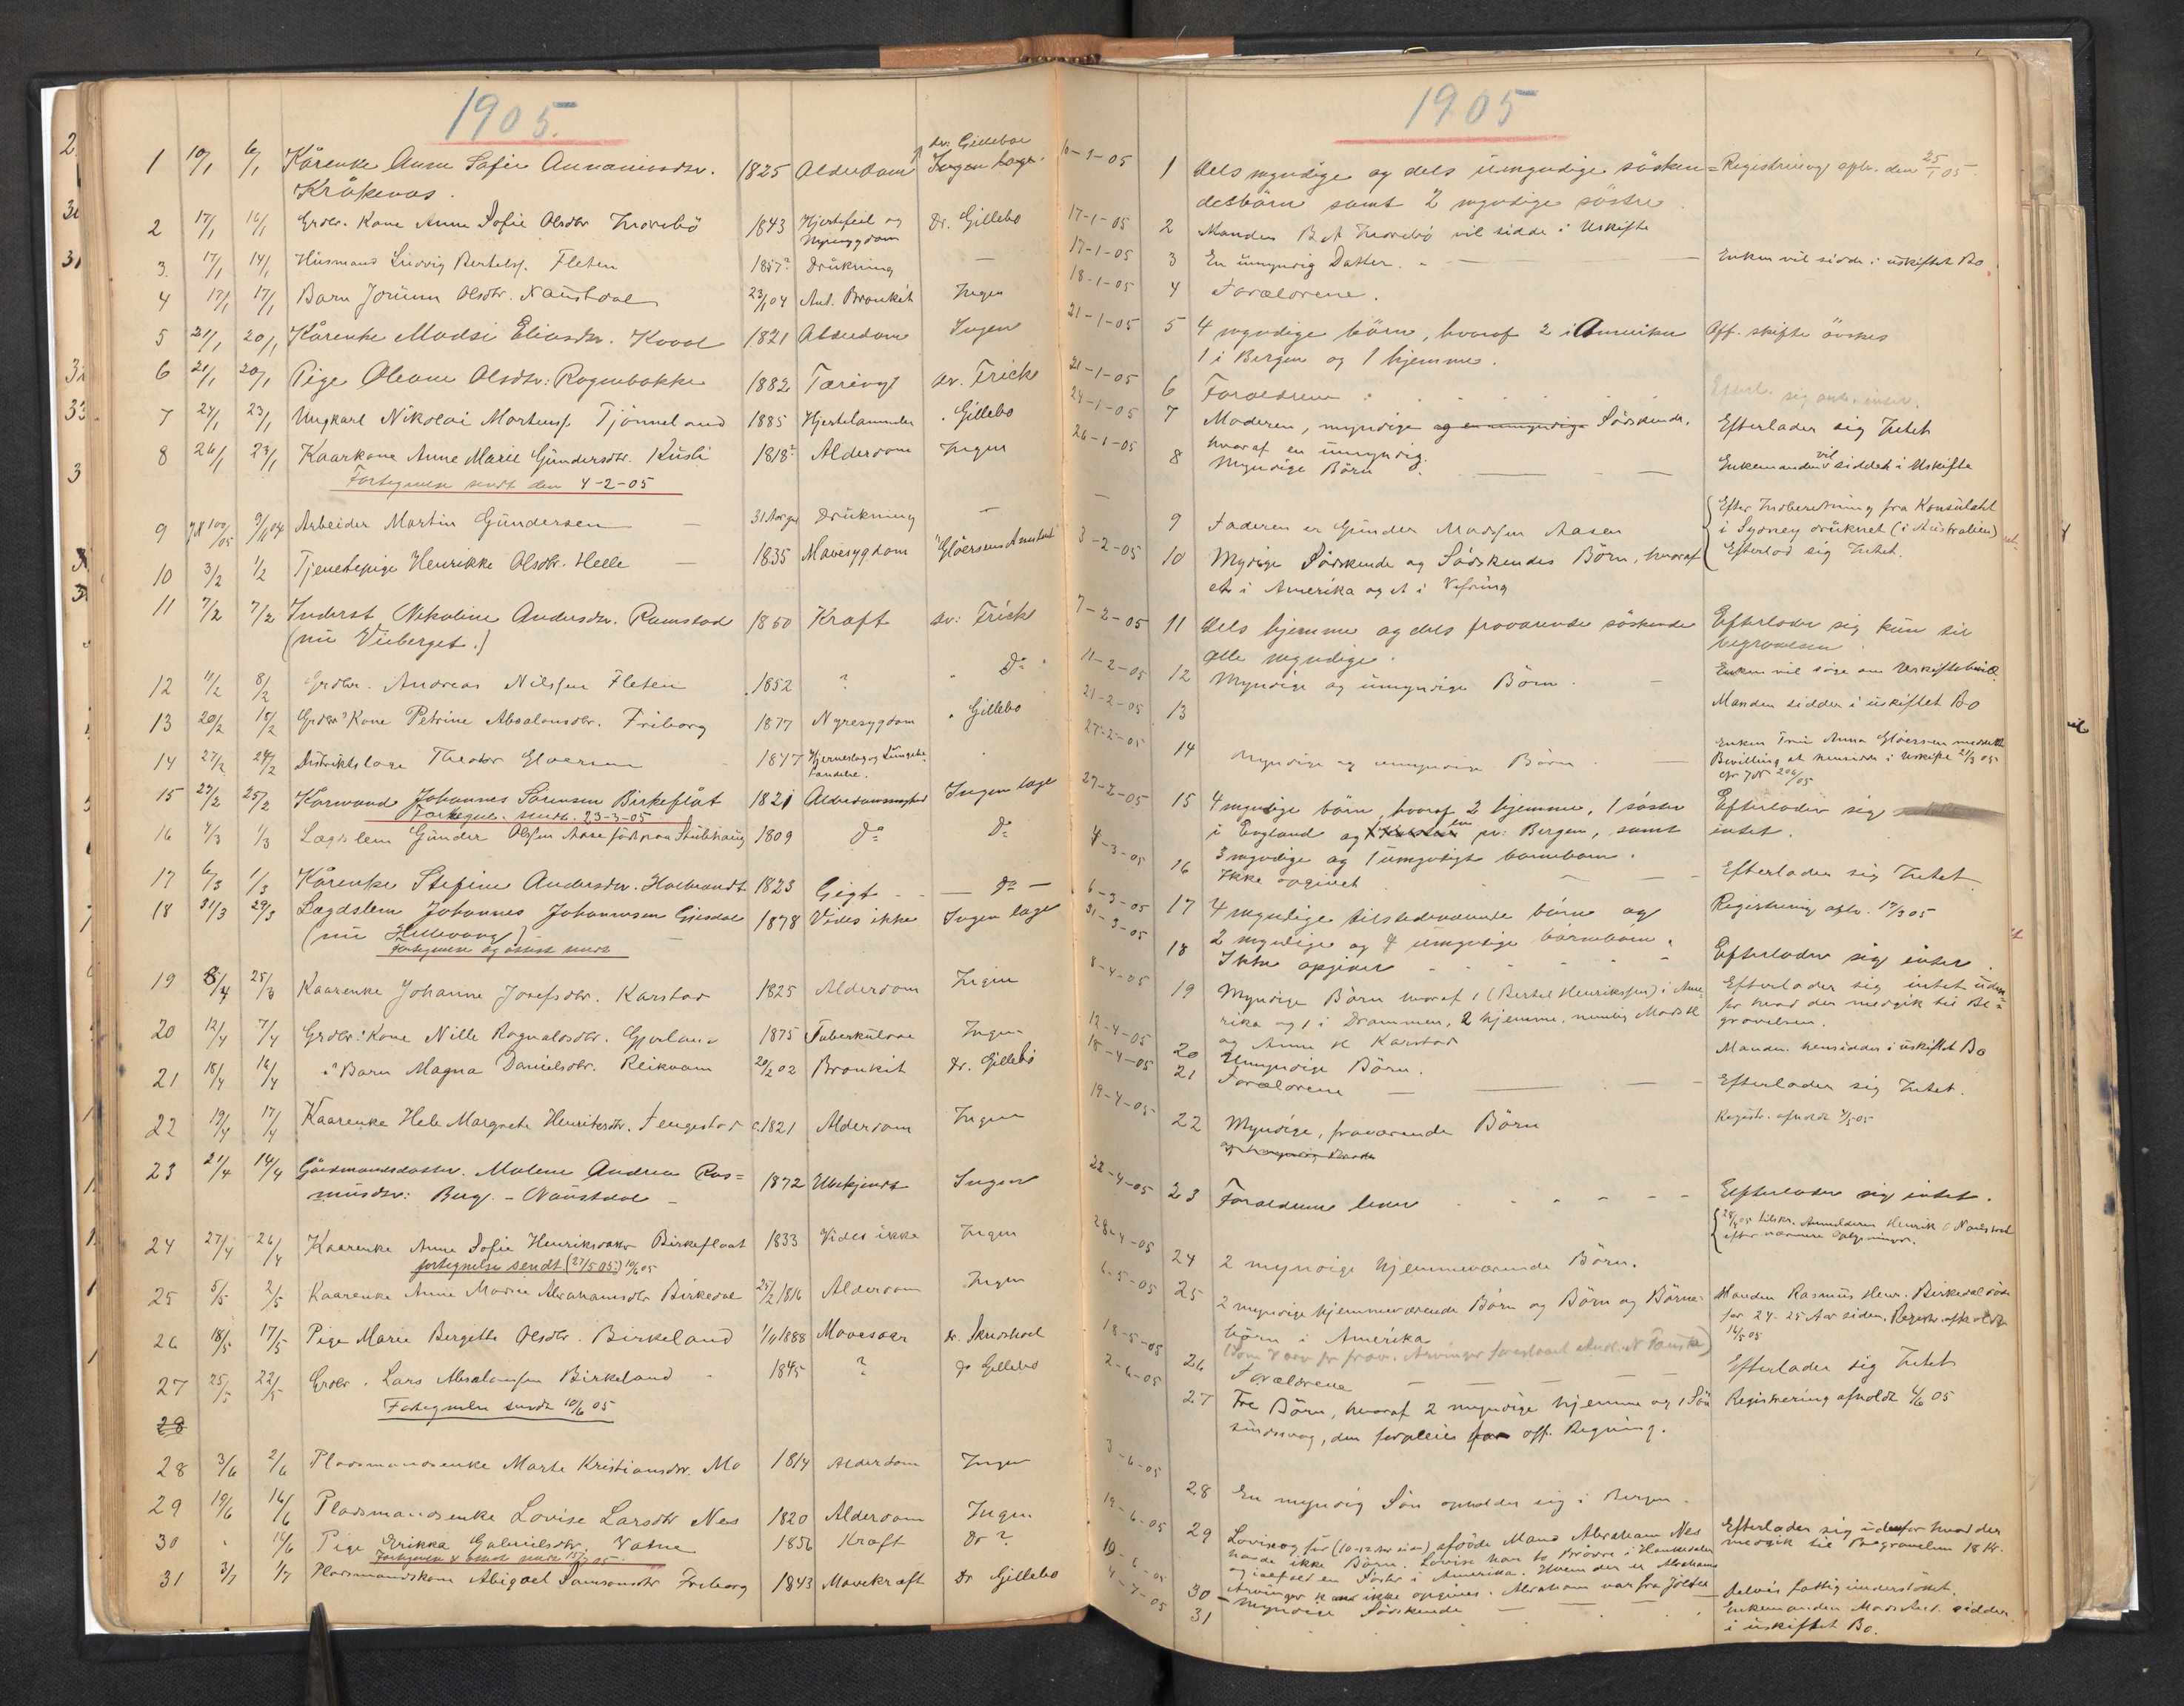 1905.
1 10/1 6/1 Kårenke Anne Sofie Annaniasdtr. 1825 Alderdom dr. Gillebo
Kråkenæs. Ingen læge.
2 17/1 16/1 Grdbr. Kone Anne Sofie Olsdtr 1843 Hjertefeil og Dr. Gillebo
Nyresygdom
3. 17/1 14/1 Husmand Ludvig Bertels. Fleten 1857? Drukning —
4 17/1 17/1 Barn Jorunn Olsdtr. Naustdal 23/1 04 Ant. Bronkit Ingen
5 21/1 20/1 Kårenke Madsi Eliasdtr. 1821 Alderdom Ingen
6 21/1 20/1 Pige Oleane Olsdtr: Rognebakke 1882 Tæring dr. Frich
7 24/1 23/1 Ungkarl Nikolai Martens. Tjönneland 1885 Hjertelammelse . Gillebo
8 26/1 23/1 Kaarkone Anne Marie Gundersdtr. Kusli 1818? Alderdom Ingen
Fortegnelse sendt den 4-2-05
9 Arbeider Martin Gundersen — 31 Aar gl Drukning —
10 3/2 1/2 Tjenestepige Henrikke Olsdtr. Helle — 1835 Mavesygdom
11 7/2 7/2 Inderst Nikoline Andersdtr. Ramstad 1850 Kræft dr: Frich
(nu Vieberget.)
12 11/2 8/2 Grdbr. Andreas Nilssen Fleten 1852 ? " Do
13 20/2 18/2 Grdbr" Kone Petrine Absalonsdtr. Friborg 1877 Nyresygdom " Gillebo
14 27/2 24/2 Distriktslæge Theodor Gloersen 1847 Hjerneslag og Lungebe-
tændelse.
15 27/2 25/2 Karmand Johannes Sörensen Birkeflåt 1821 Alderdomssvaghed Ingen læge
Fortegn. sendt. 23-3-05
16 4/3 1/3 Lægdslem Gunder Olssen Aase född paa Stubhaug 1809 Do Do
17 6/3 1/3 Kårenke Stefine Andersdtr. 1823 Gigt — Do —
18 31/3 29/3 Lægdslem Johannes Johannesen Gjesdal 1878 Vides ikke Ingen læge
(nu Hellevang) —
Fortegnelse og attest sendt
19 8/4 25/3 Kaarenke Johanne Josefsdtr. Karstad 1825 Alderdom Ingen
20 12/4 7/4 Grdbr" Kone Nille Ragnaldsdtr. Gjerland 1875 Tuberkulose Ingen
21 18/4 16/4 " Barn Magna Danielsdtr. Reikvam 20/2 02 Bronkit Dr. Gillebo
22 19/4 17/4 Kaarenke Hele Margrete Henriksdtr. Fengestad c.1821 Alderdom Ingen
23 21/4 14/4 Gårdmandsdatter. Malene Andrea Ras= 1872 Ubekjendt Ingen
musdtr: Berg. - Naustdal -
24 27/4 26/4 Kaarenke Anne Sofie Henriksdatter Birkeflaat 1833 Vides ikke Ingen
fortegnelse sendt (27/5 05) 10/6 05
25 5/5 2/5 Kaarenke Anne Marie Abrahamsdtr Birkedal 25/2 1816 Alderdom Ingen
26 18/5 17/5 Pige Marie Bergitte Olsdtr. Birkeland 1/11 1888 Mavesaar Dr. Skredsvel
27 25/5 22/5 Grdbr. Lars Absalonsen Birkeland 1845 ? Do Gillebo
Fortegnelse sendt 10/6 05
28
28 3/6 2/6 Pladsmandsenke Marte Kristiansdtr. Mo 1814 Alderdom Ingen
29 19/6 16/6 Pladsmandsenke Lovise Larsdtr Nes 1820 Alderdom Ingen
30 " 15/6 Pige Erikka Gabrielsdtr. Vatne 1856 Kræft Dr ?
31 3/7 1/7 Pladsmandskone Abigael Samsonsdtr Friborg 1843 Mavekræft Dr Gillebo
1905
10-1-05 1 dels myndige og dels umyndige sösken= Registrering afh. den 25/1 05.
debörn samt 2 myndige söstre.
17-1-05 2 Manden B A vil sidde i Uskifte
17-1-05 3 En umyndig Datter. — Enken vil sidde i uskiftet Bo
18-1-05 4 Forældrene.
21-1-05 5 4 myndige börn, hvoraf 2 i Amerika Off. skifte önskes
1 i Bergen og 1 hjemme.
21-1-05 6 Forældrene . Efterl. sig
24-1-05 7 Moderen, myndige og en umyndige Södskende. Efterlader sig Intet
hvoraf en umyndig.
26-1-05 8 Myndige Börn — Enkemanden vil siddet i Uskifte
— 9 Faderen er Gunder Madssen Aasen Efter Indberetning fra Konsulatet
i Sydney druknet (i Australien)
Efterlod sig Intet.
3-2-05 10 Mydige Södskende og Södskendes Börn, hvoraf
et i Amerika og et i Vefring
7-2-05 11 dels hjemme og dels fraværende söskende Efterlader sig kun til
alle myndige. begravelsen
11-2-05 12 Myndige og umyndige Börn. — Enken vil söge om Uskiftebevill.
21-2-05 13 Manden sidder i uskiftet Bo
27-2-05 14 Myndige og umyndige Börn — Enken Fru Anna Gloersen meddelt
Bevilling at hensidde i Uskifte 21/3 05
27-2-05 15 4 myndige börn, hvoraf 2 hjemme, 1 söster Efterlader sig
i England og en pr: Bergen, samt intet.
3 myndige og 1 umyndigt barnebarn.
4-3-05 16 Ikke opgivet — Efterlader sig Intet
6-3-05 17 4 myndige tilstedeværende börn og Registrering afh. 17/3 05
2 myndige og 4 umyndige börnebörn.
31-3-05 18 Ikke opgiver - Efterlader sig intet.
8-4-05 19 Myndige Börn hvoraf 1 (Bertel Henrikssen) i Ame- Efterlader sig intet uden-
rika og 1 i Drammen, 2 hjemme, nemlig Mads H for hvad der medgik til Be-
og Anne H Karstad gravelsen.
12-4-05 20 Umyndige Börn. Manden hensidder i uskiftet Bo
18-4-05 21 Forældrene — Efterlader sig Intet.
19-4-05 22 Myndige, fraværende Börn Registr. afholdt 4/5 05
22-4-05 23 Forældrene lever - Efterlader sig intet.
28/4 05 tilskr. Anmelderen Henrik O Naustdal
efter nærmere Oplysninger.
28-4-05 24 2 myndige hjemmeværende Börn.
6-5-05 25 2 myndige hjemmeværende Börn og Börn og Börne- Manden Rasmus Henr. Birkedal döde
börn i Amerika for 24-25 Aar siden. Registr. afholdt
16/5 05
18-5-05 26 Forældrene — Efterlader sig Intet
2-6-05 27 Tre Börn, hvoraf 2 myndige hjemme og 1 Sön Registrering afholdt 4/6 05
sindssvag, der forpleies for off. Regning.
3-6-05 28 En myndig Sön opholder sig i Bergen.
19-6-05 29 Lovise og för (10-12 Aar siden) afdöde Mand Abraham Nes Efterlader sig udenfor hvad der
havde ikke Börn. Lovise har to Brödre i medgik til Begravelsen 18 Kr.
og ialfald en Söster i Amerika. Hvem der er Abrahams
Arvinger kan ikke opgives. Abraham var fra Jölster
19-6-05 30 Myndige Södskende — Delvis fattigunderstöttet.
4-7-05 31 Enkemanden Mads And. sidder
i uskiftet Bo.